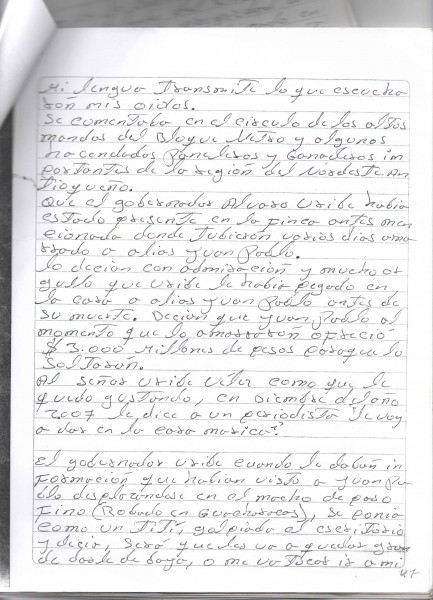 Mi lengua transmite lo que escucha
rón mis oidos.
Se comentaba en el circulo de los altos
mandos del Bloque Metro y algunos
hacendados Paneleros y Ganaderos im
portantes de la región del Nordeste An
tioqueño.
Que el gobernador Alvaro Uribe habia
estado presente en la finca antes men
cionada donde tubierón varios dias ama
rrado a alias Juan Pablo.
lo decian con admiración y mucho or
gullo que Uribe le habia pegado en
la cara a alias Juan Pablo antes de
su muerte. Decian que Juan Pablo al
momento que lo amarrarón ofreció
$ 3.000 Millones de pesos para que lo
Soltarón.
Al Señor Uribe Velez como que le
quedo gustando, en Diciembre del año
2.007 le dice a un periodista "le voy
a dar en la cara marica"?
El gobernador Uribe cuando le daban in
formación que habian visto a Juan Pa
blo desplazandose en el macho de paso
Fino (Robado en Guacharacas), se ponia
como un TiTi, golpiaba el escritorio
y decia, será que les va a quedar gran
de darle de baja, o me va tocar ir a mi
47